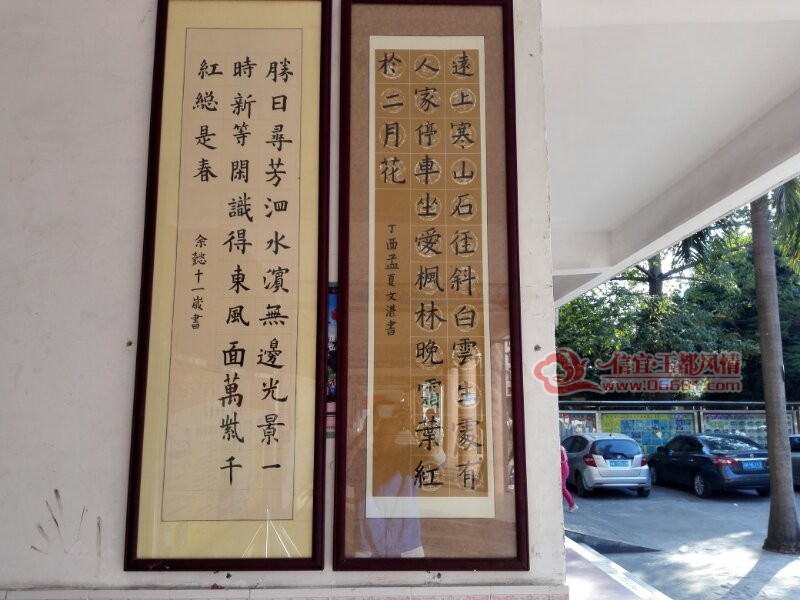 勝日尋芳泗水濱無邊光景一
時新等閑識得東風面萬紫千
紅總是春
余懿十一歲書
遠上寒山石徑斜白雲生處有
人家停車坐愛楓林晚霜葉紅
於二月花
丁酉孟夏文湛書
信宜玉都风情
www.06681.com